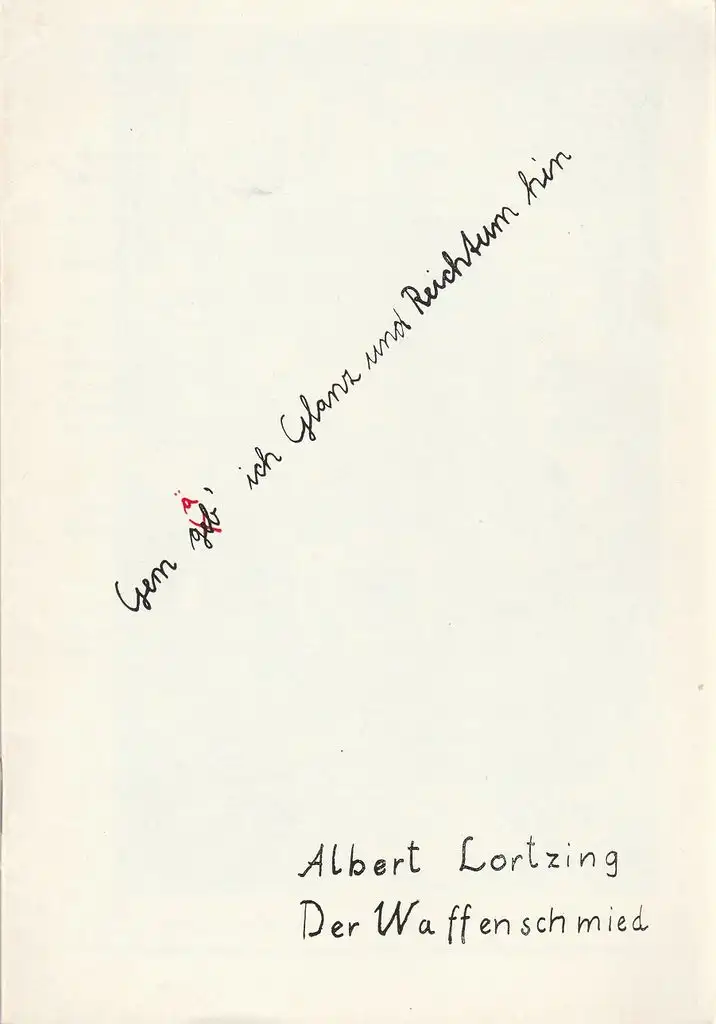 Gern gäb' ich Glanz und Reichtum hin
Albert Lortzing
Der Waffenschmied